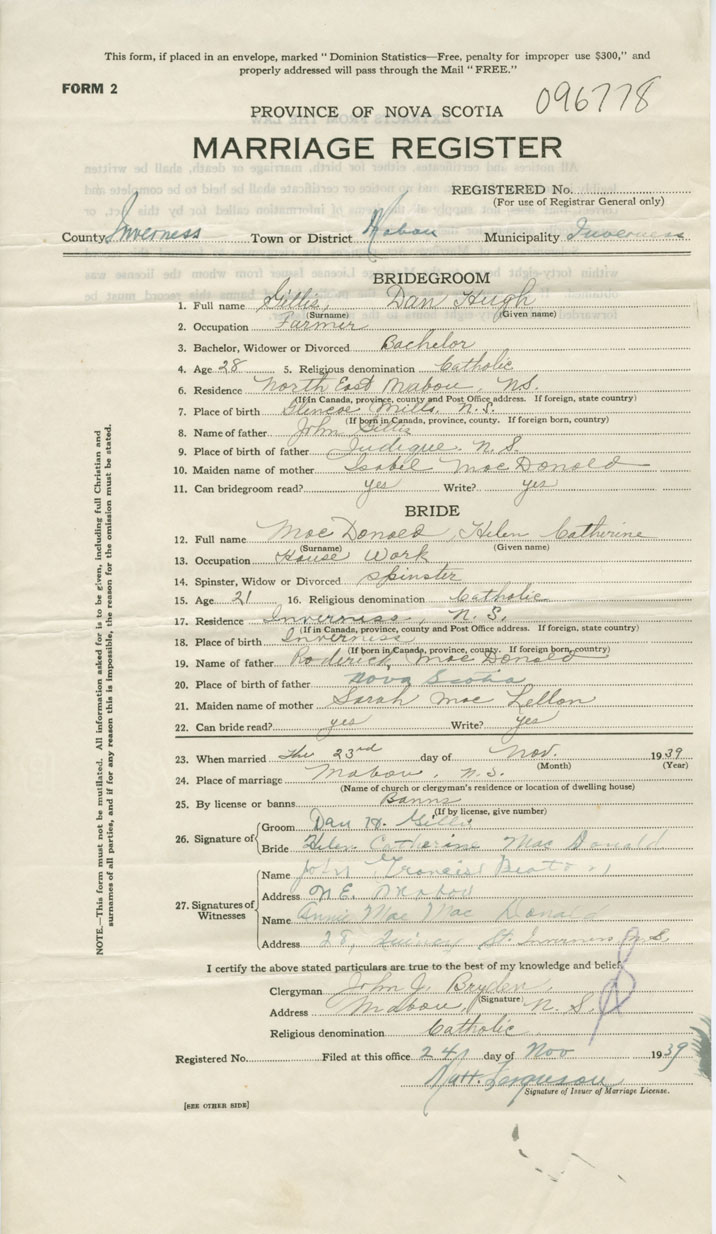 This form, if placed in an envelope, marked "Dominion Statistics—Free, penalty for improper use $300," and
properly addressed will pass through the Mail "FREE."
FORM 2
096778
PROVINCE OF NOVA SCOTIA
MARRIAGE REGISTER
REGISTERED No.
(For use of Registrar General only)
County Inverness Town or District Mabou Municipality Inverness
BRIDEGROOM
1. Full name Gillis, Dan Hugh
(Surname) (Given name)
2. Occupation Farmer
3. Bachelor, Widower or Divorced Bachelor
4. Age 28 5. Religious denomination Catholic
6. Residence North East Mabou, N.S.
(If in Canada, province, county and Post Office address. If foreign, state country)
7. Place of birth Glencoe Mills, N.S.
(If born in Canada, province, county. If foreign born, country)
8. Name of father John Gillis
9. Place of birth of father Judique N.S.
10. Maiden name of mother Isabel MacDonald
11. Can bridegroom read? yes Write? yes
BRIDE
12. Full name MacDonald, Helen Catherine
(Surname) (Given name)
13. Occupation House Work
14. Spinster, Widow or Divorced Spinster
15. Age 21 16. Religious denomination Catholic
17. Residence Inverness, N.S.
(If in Canada, province, county and Post Office address. If foreign, state country)
18. Place of birth Inverness
(If born in Canada, province, county. If foreign born, country)
19. Name of father Roderick MacDonald
20. Place of father Nova Scotia
21. Maiden name of mother Sarah Mac Lellan
22. Can bride read? yes Write? yes
23. When married the 23rd day of Nov. 1939
(Month) (Year)
24. Place of marriage Mabou, N.S.
(Name of church or clergyman's residence or location of dwelling house)
25. By license or banns Banns
(If by license, give number)
26. Signature of Groom Dan H. Gillis
Bride Helen Catherine Mac Donald
27. Signatures of Witnesses
Name John Francis Beaton
Address N.E. Mabou
Name Annie Mae Mac Donald
Address 28, St. Inverness N.S.
I certify the above stated particulars are true to the best of my knowledge and belief,
Clergyman John J. Bryden
(Signature)
Address Mabou, N.S.
Religious denomination Catholic
Registered No. Filed at this office 24 day of Nov 1939
Matt. Ferguson
Signature of Issuer of Marriage License.
[SEE OTHER SIDE]
NOTE.—This form must not be mutilated. All information asked for is to be given, including full Christian and
surnames of all parties, and if for any reason this is impossible, the reason for the omission must be stated.